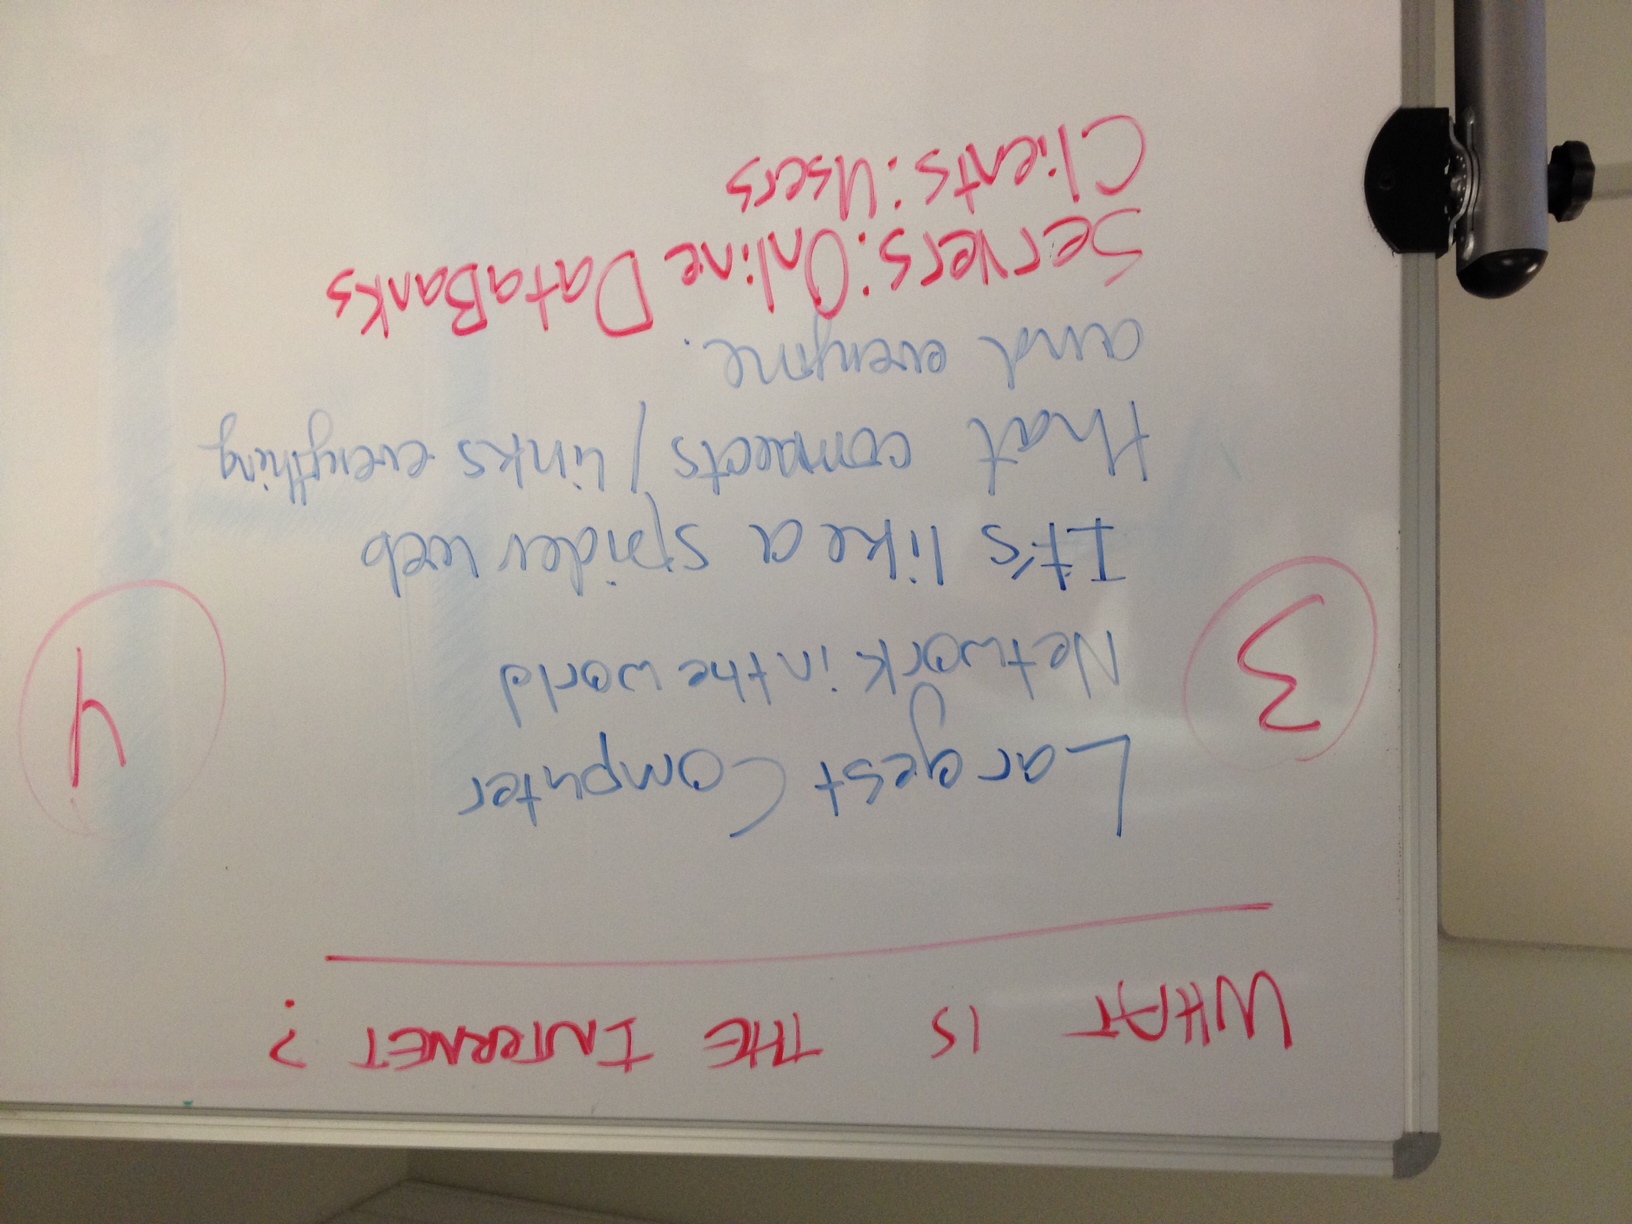 WHAT IS THE INTERNET?
3
4
Largest Computer
Network in the world
It's like a spider web
that connects / links everything
and everyone.
Servers: Online DataBanks
Clients: Users